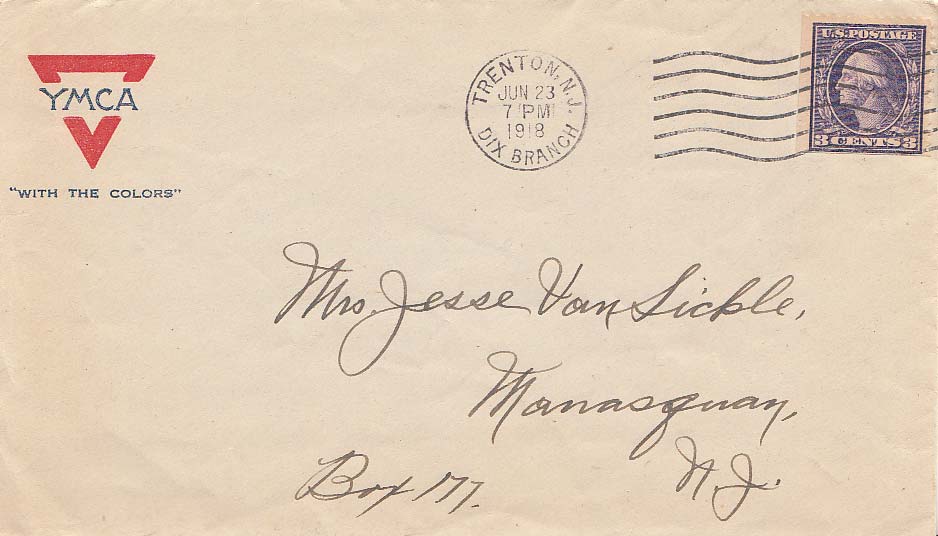 YMCA
"WITH THE COLORS"
TRENTON, N.J.
JUN 23
7 PM
1918
DIX BRANCH
U.S. POSTAGE
3 CENTS 3
Mrs. Jesse Van Sickle,
Manasquan,
N.J.
Box 177.